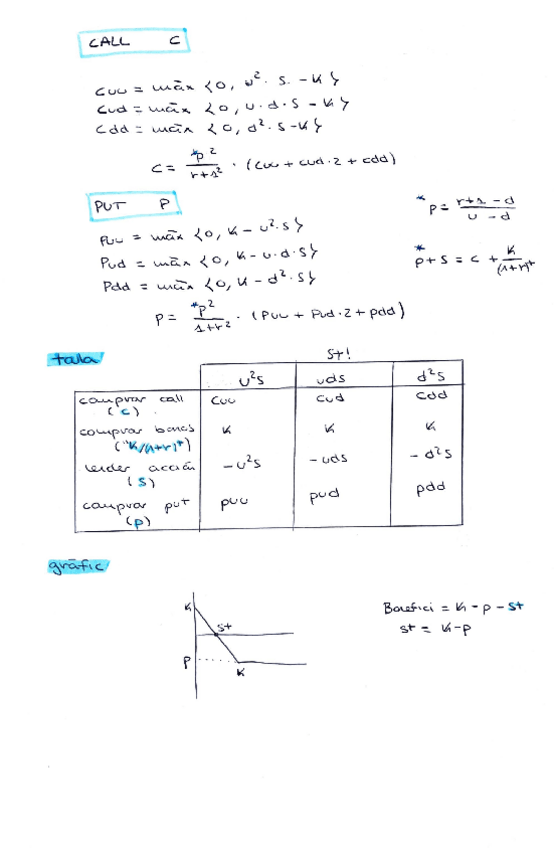 CALL C
Cuu = màx {0, u². S. - K}
Cud = màx {0, u·d·S - K}
Cdd = màx {0, d²·S-K}
C = *p² / r+1² · (Cuu + cud·2 + cdd)
PUT P
Puu = màx {0, K - u²·S}
Pud = màx {0, K - u·d·S}
Pdd = màx {0, K - d²·S}
P = *p² / 1+r² · (Puu + Pud·2 + pdd)
* p = r+1-d / u-d
* p+s = c + K / (1+r)^t
taula
St!
u²s uds d²s
comprar call (c) cuu cud cdd
comprar bonos ("K/(1+r)^t) K K K
vender acción (S) -u²s -uds -d²s
comprar put (p) puu pud pdd
gràfic
K
St
P
K
Benefici = K - p - St
St = K-p